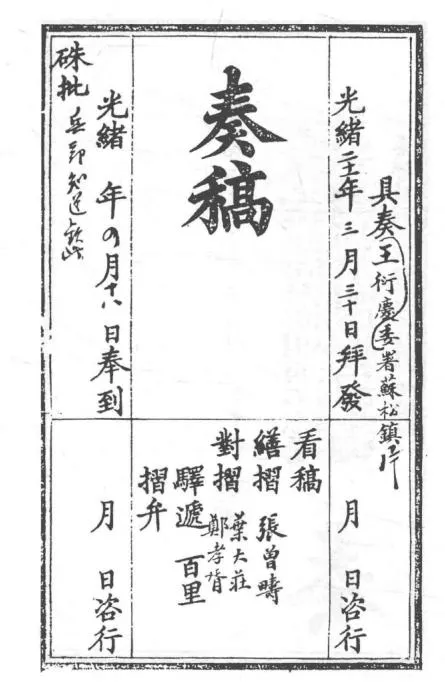 具奏王衍慶委署蘇松鎮片
光緒二十一年三月三十日拜發
奏稿
光緒 年四月十八日奉到
硃批 兵部知道欽此
月 日咨行
看稿
繕摺 張曾疇
對摺 葉大莊
鄭孝胥
驛遞 百里
摺弁
月 日咨行